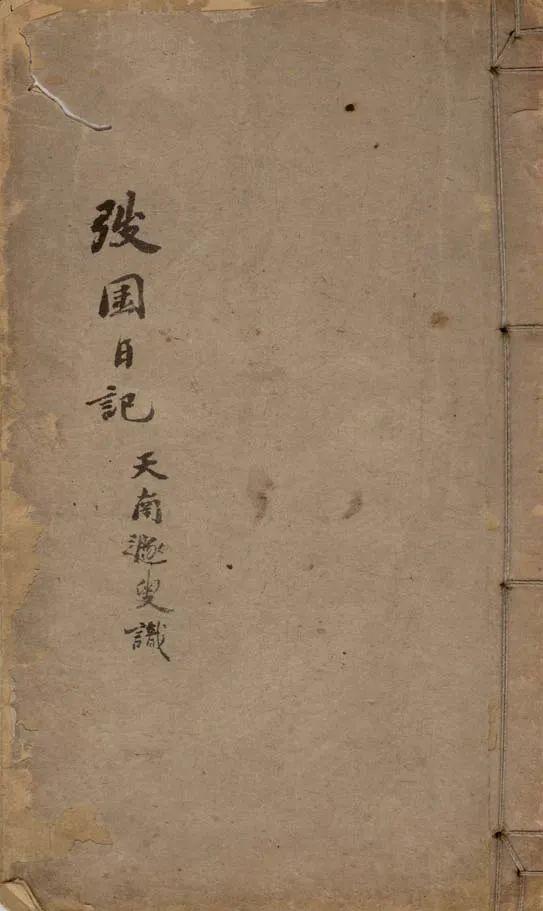 弢园日記
天南遯叟識